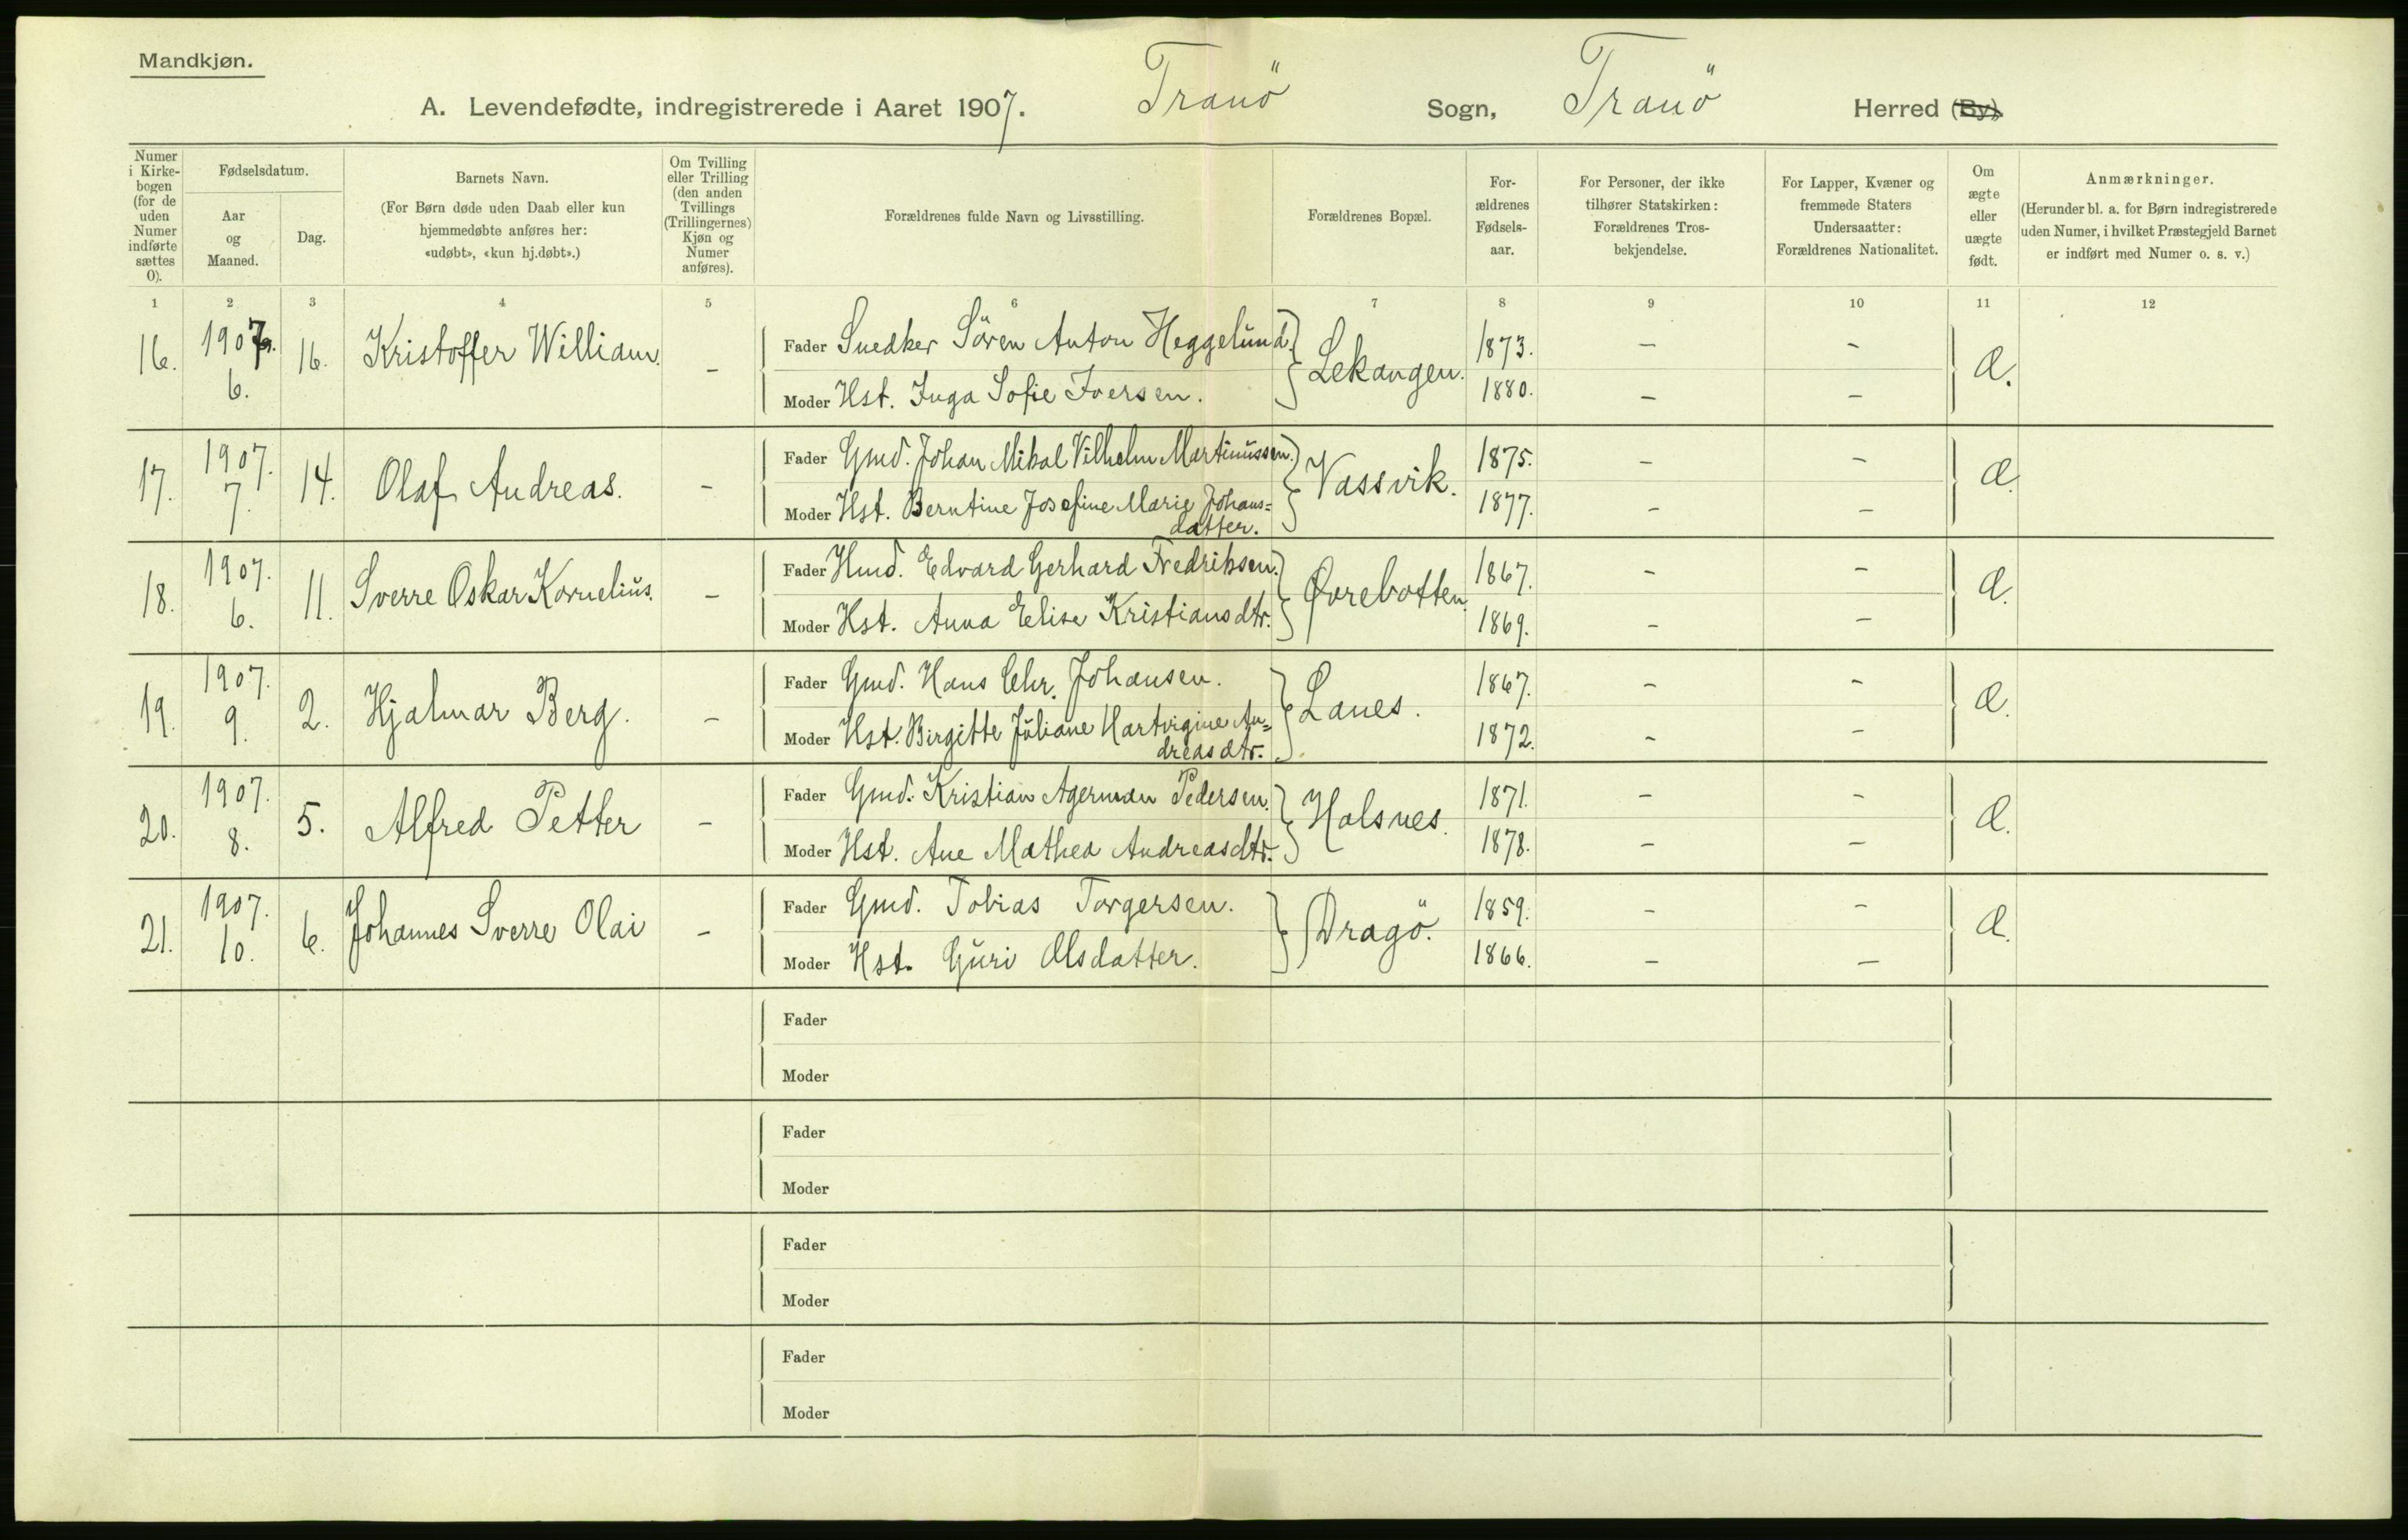 Mandkjøn.
A. Levendefødte, indregistrerede i Aaret 1907. Tranö Sogn, Tranö Herred (By).
Numer i Kirkebogen (for de uden Numer indførte sættes 0).
Fødselsdatum.
Aar og Maaned.
Dag.
Barnets Navn.
(For Børn døde uden Daab eller kun hjemmedøbte anføres her: «udøbt», «kun hj.døbt».)
Om Tvilling eller Trilling (den anden Tvillings (Trillingernes) Kjøn og Numer anføres).
Forældrenes fulde Navn og Livsstilling.
Forældrenes Bopæl.
For-ældrenes Fødsels-aar.
For Personer, der ikke tilhører Statskirken: Forældrenes Tros-bekjendelse.
For Lapper, Kvæner og fremmede Staters Undersaatter: Forældrenes Nationalitet.
Om ægte eller uægte født.
Anmærkninger.
(Herunder bl. a. for Børn indregistrerede uden Numer, i hvilket Præstegjeld Barnet er indført med Numer o. s. v.)
1 2 3 4 5 6 7 8 9 10 11 12
16. 1907. 6. 16. Kristoffer William. –
Fader Snedker Sören Anton Heggelund. Lekangen. 1873. – –
Moder Hst. Inga Sofie Iversen. 1880. – –
17. 1907. 7. 14. Olaf Andreas. –
Fader Gmd. Johan Mikal Vilhelm Martinussen. Vassvik. 1875. – –
Moder Hst. Berntine Josefine Marie Johans=
datter. 1877. – –
18. 1907. 6. 11. Sverre Oskar Kornelius. –
Fader Hmd. Edvard Gerhard Fredriksen. Øvrebotten. 1867. – –
Moder Hst. Anna Elise Kristiansdtr. 1869. – –
19. 1907. 9. 2. Hjalmar Berg. –
Fader Gmd. Hans Chr. Johansen. Lanes. 1867. – –
Moder Hst. Birgitte Juliane Hartvigine An=
dreasdtr. 1872. – –
20. 1907. 8. 5. Alfred Petter –
Fader Gmd. Kristian Agerman Pedersen. Halsnes. 1871. – –
Moder Hst. Ane Mathea Andreasdtr. 1878. – –
21. 1907. 10. 6. Johannes Sverre Olai –
Fader Gmd. Tobias Torgersen. Dragö. 1859. – –
Moder Hst. Guri Olsdatter. 1866. – –
Fader
Moder
Fader
Moder
Fader
Moder
Fader
Moder